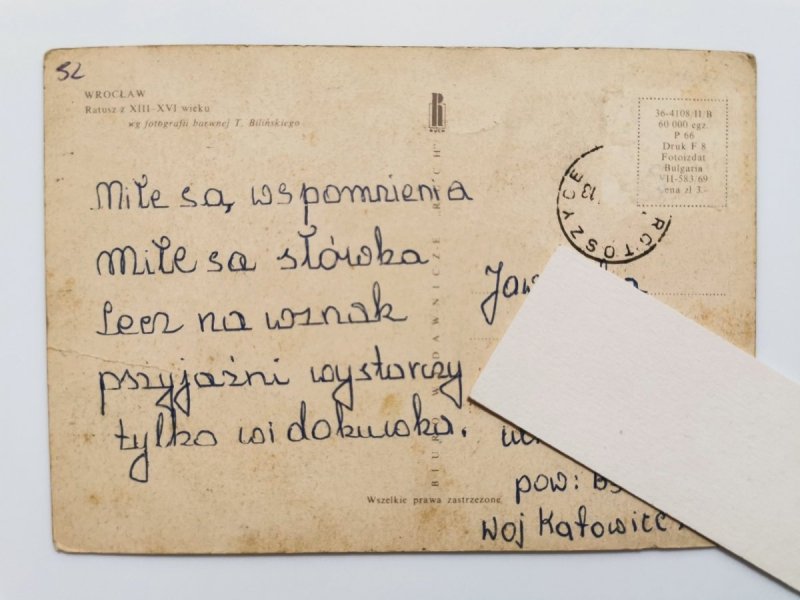 52
WROCŁAW
Ratusz z XIII-XVI wieku
wg fotografii barwnej T. Bilińskiego
RUCH
36-4108/II/B
60 000 egz.
P 66
Druk F 8
Fotoizdat
Bulgaria
VII-583/69
Cena zł 3.-
Miłe są, wspomnienia
Miłe sa słówka
Lecz na wznak
przyjaźni wystarczy
tylko widokuwka.
BIURO WYDAWNICZE RUCH
Wszelkie prawa zastrzeżone
pow:
Woj Katowice